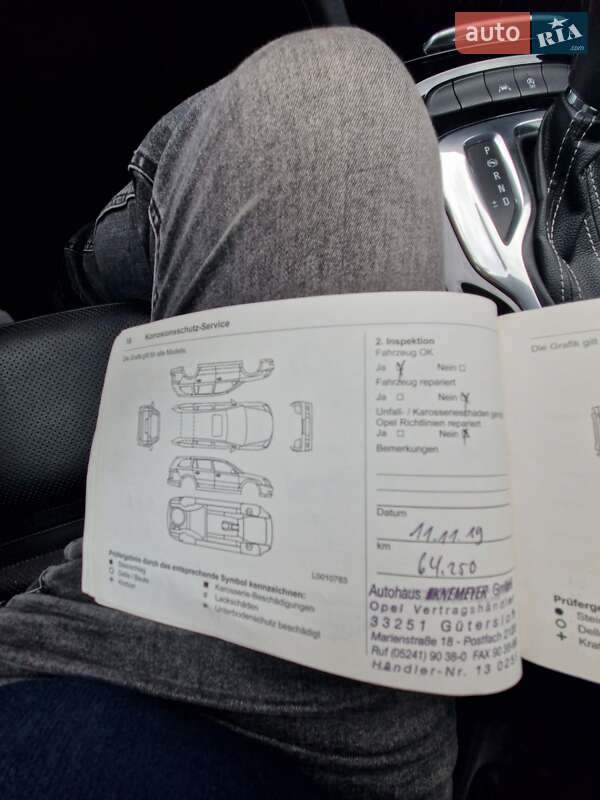 auto RIA.com
P
R
N
D
±
18 Korrosionsschutz-Service
Die Grafik gilt für alle Modelle.
L0010785
Prüfergebnis durch das entsprechende Symbol kennzeichnen:
● Steinschlag
○ Delle / Beule
+ Kratzer
■ Karosserie-Beschädigungen
Lackschäden
Unterbodenschutz beschädigt
2. Inspektion
Fahrzeug OK
Ja Nein
Fahrzeug repariert
Ja Nein
Unfall- / Karosserieschäden
Opel Richtlinien repariert
Ja Nein
Bemerkungen
Datum
11.11.19
km
64.250
Autohaus GmbH
Opel Vertragshändler
33251 Gütersloh
Marienstraße 18 - Postfach
Ruf (05241) 90 38-0 FAX 90
Händler-Nr. 13 025
Die Grafik gilt
Prüfergeb
● Stein
○ Delle
+ Krat